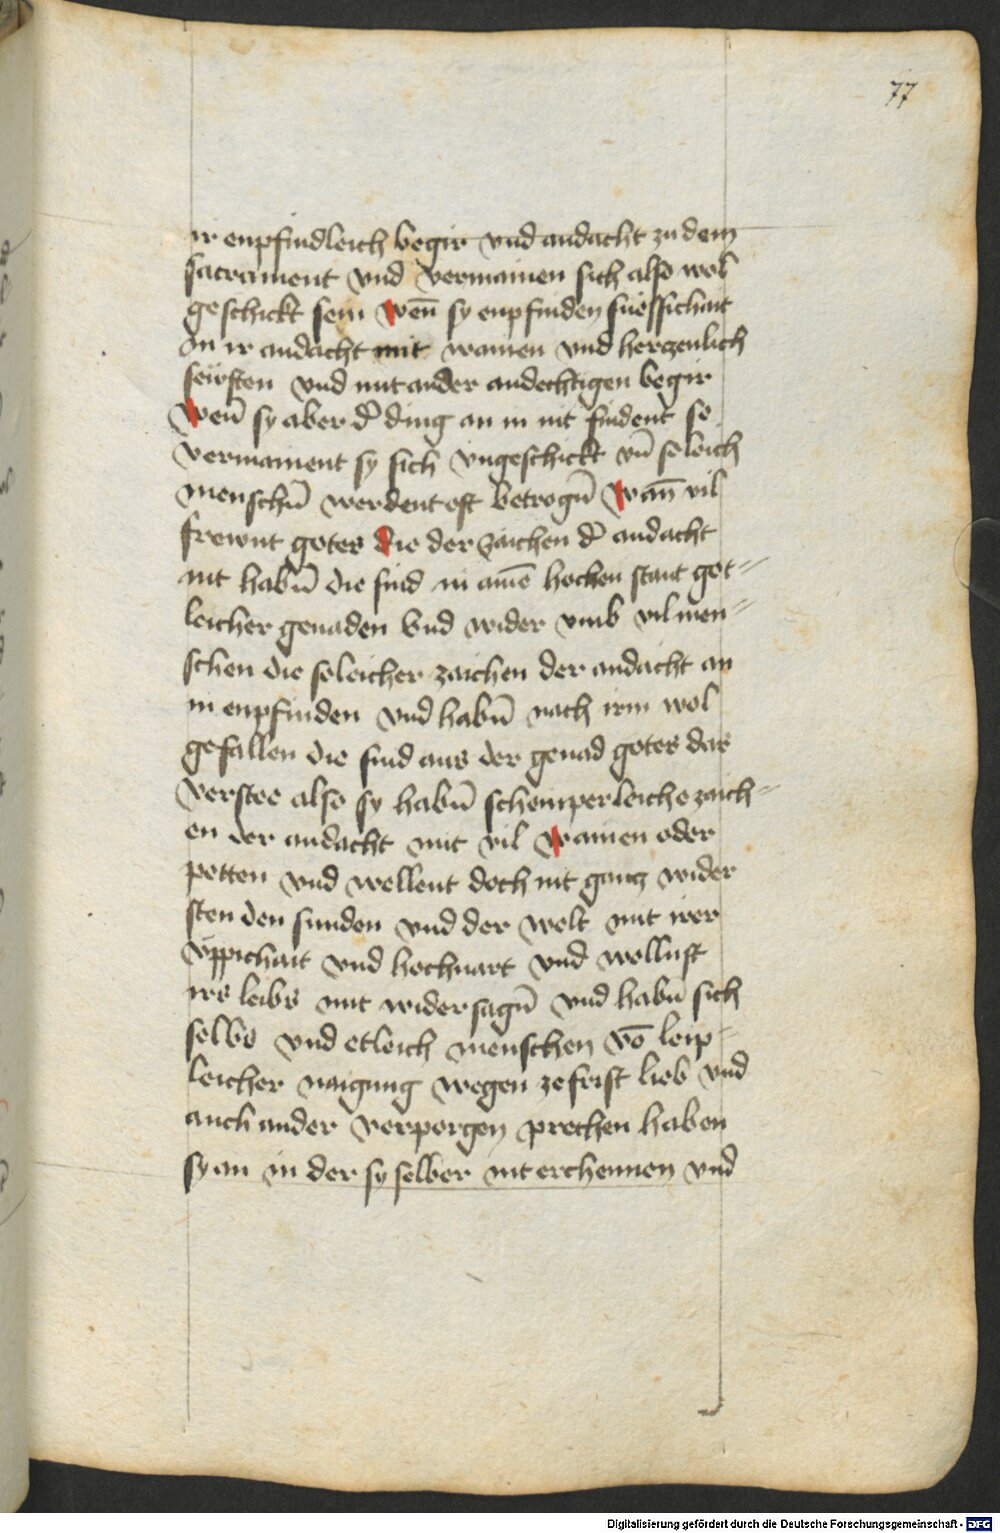 77
ir enpfindleich begir vnd andacht zu dem
sacrament vnd vermainen sich also wol
geschickt sein wen̄ sy enpfinden süessichait
in ir andacht mit wainen vnd herczenlich
seüfften vnd mit ander andechtigen begir
Wen̄ sy aber d̄ ding an in nit findent so
vermainent sy sich vngeschickt vn̄ soleich
menschn̄ werdent oft betrogn̄ Wan̄ vil
frewnt gotes die der zaichen d̄ andacht
nit habn̄ die sind in aine̅ hochen stant got=
leicher genaden Vnd wider vmb vil men=
schen die soleicher zaichen der andacht an
in enpfinden vnd habn̄ nach irm wol
gefallen die sind aus der genad gotes das
verstee also sy habn̄ scheinperleiche zaich=
en der andacht mit vil wainen oder
petten vnd wellent doch nit gancz wider
sten den sunden vnd der welt mit irer
üppichait vnd hochuart vnd wollust
irs leibs nit widersagn̄ vnd habn̄ sich
selbs vnd etleich menschen vō leip=
leicher naigung wegen ze frist lieb vnd
auch ander verporgen prechen haben
sy an in der sy selber nit erchennen vnd
Digitalisierung gefördert durch die Deutsche Forschungsgemeinschaft - DFG